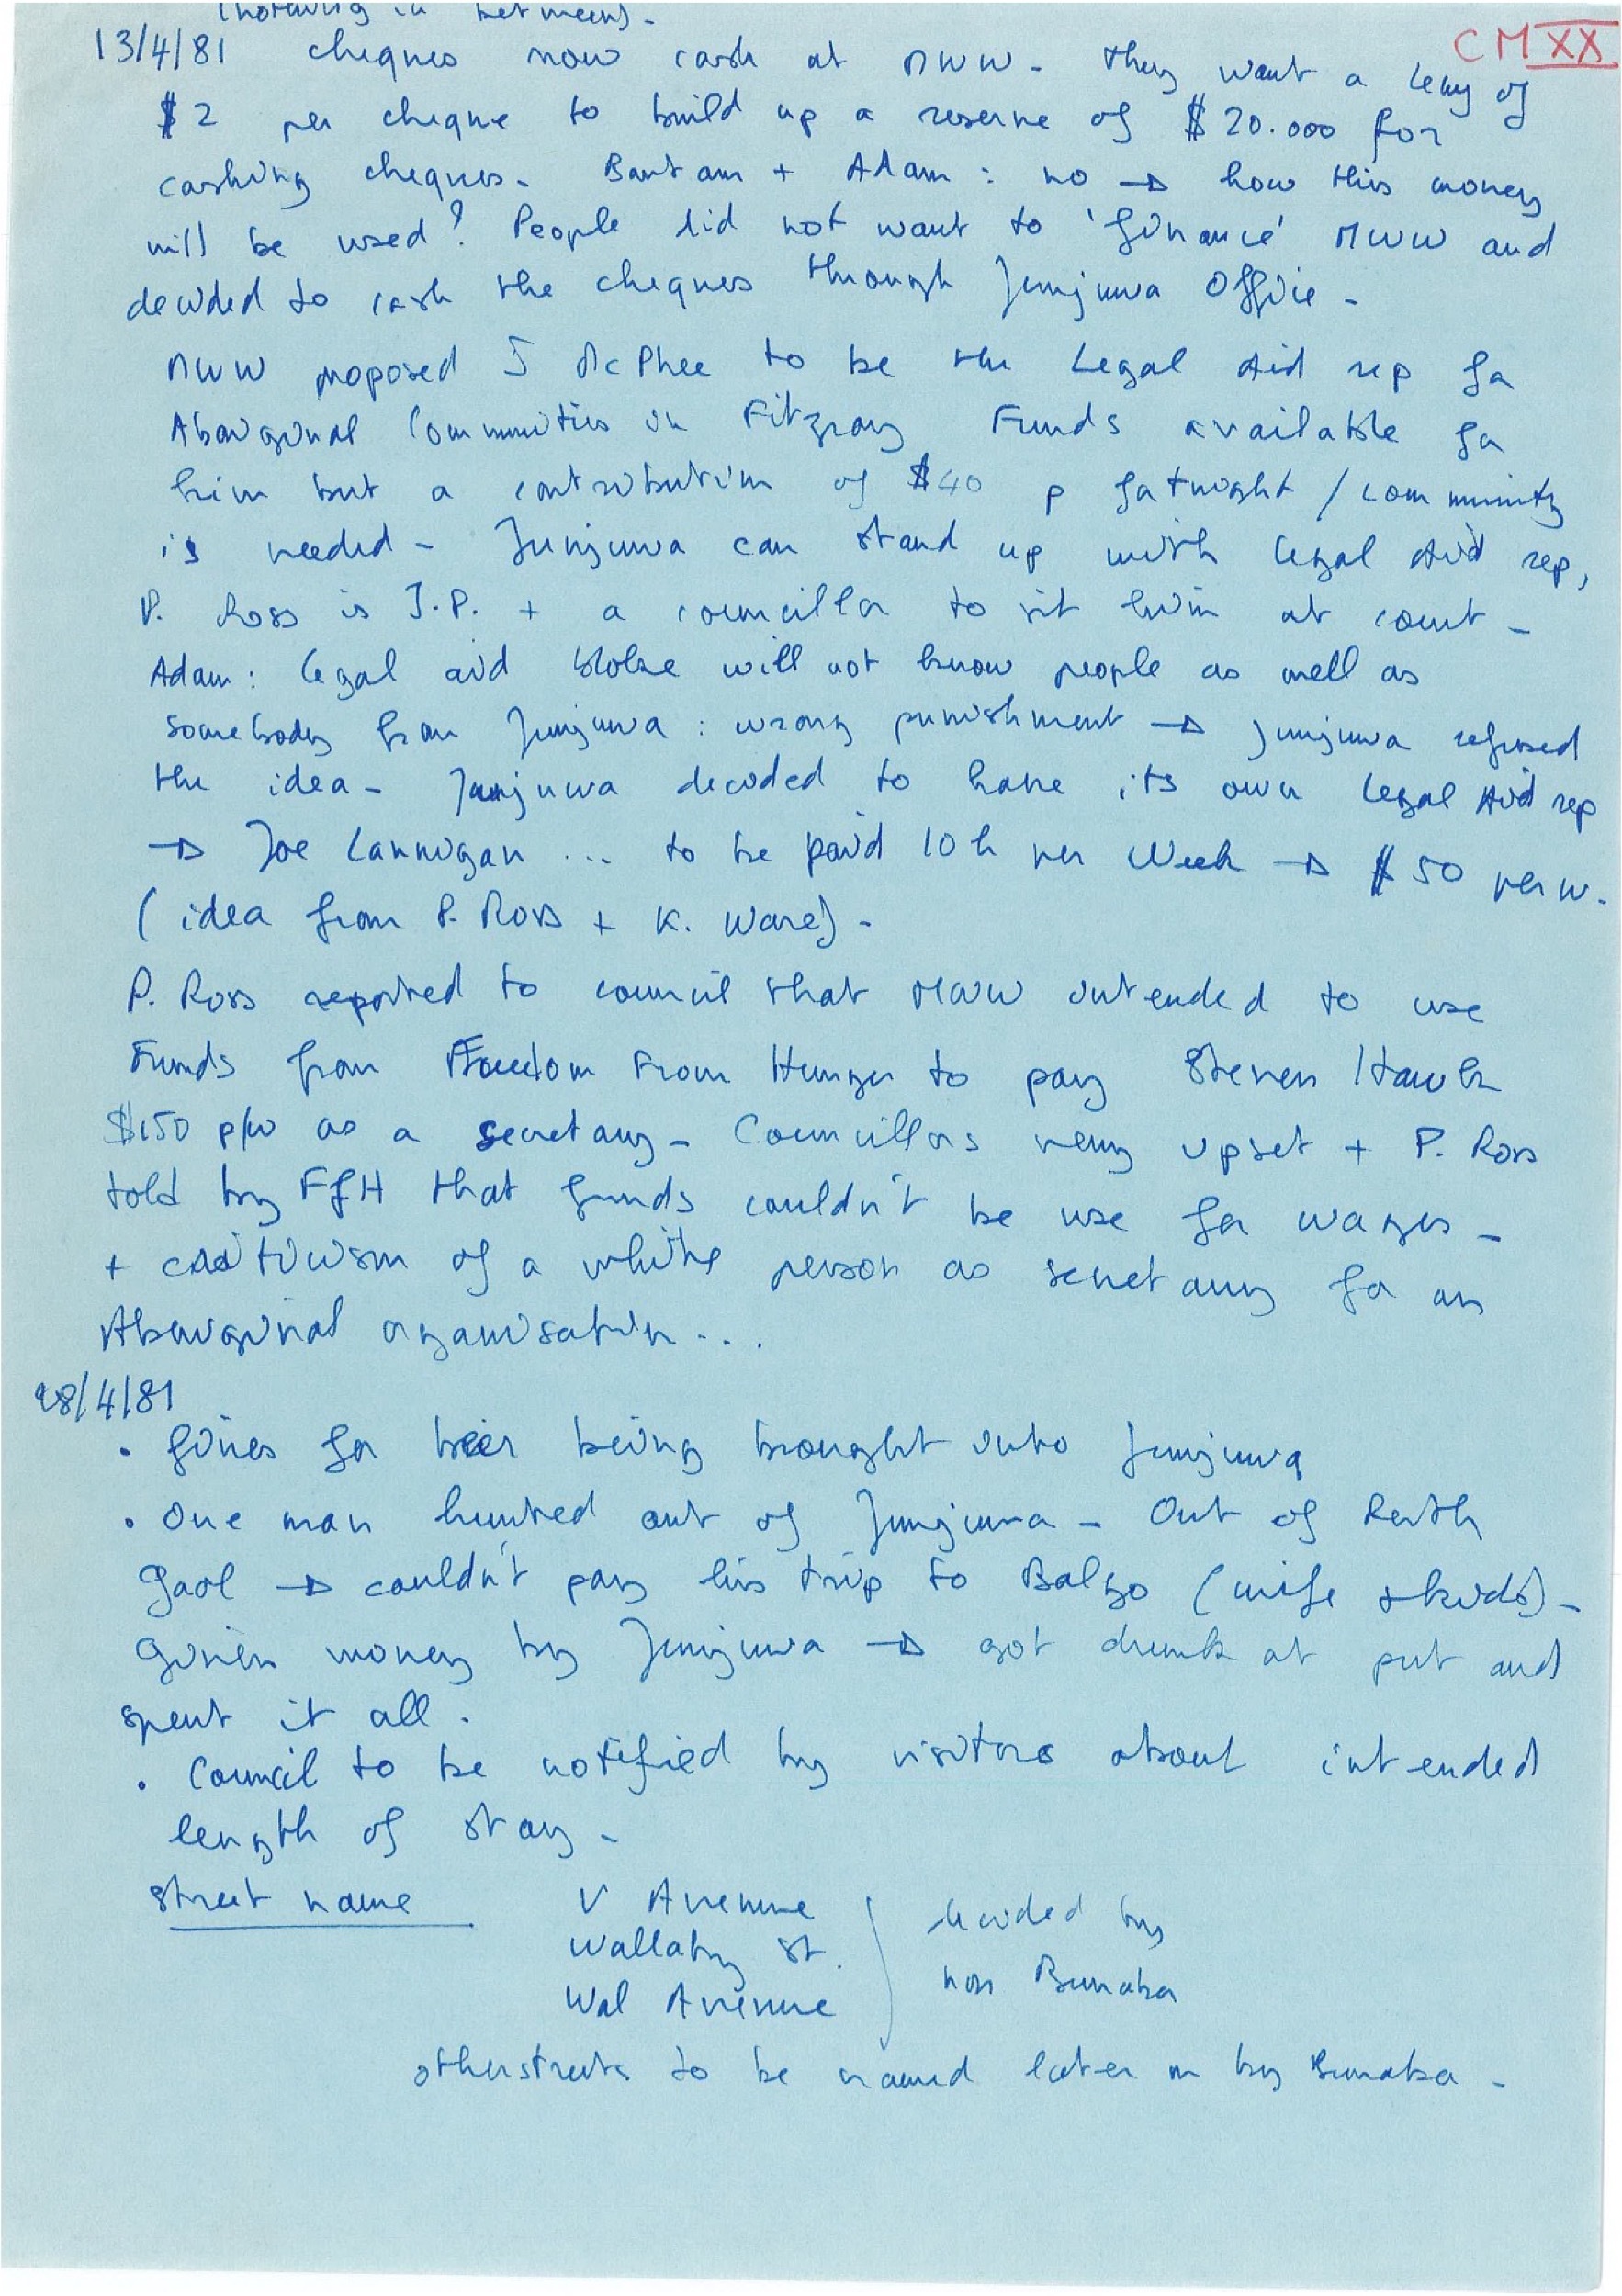 (nothing in between).
CM XX
13/4/81 cheques now cash at MWW - they want a levy of
$2 per cheque to build up a reserve of $20.000 for
cashing cheques. Bantam + Adam : no → how this money
will be used? People did not want to 'finance' MWW and
decided to cash the cheques through Junjuwa Office -
MWW proposed J McPhee to be the Legal Aid rep for
Aboriginal Communities in Fitzroy Funds available for
him but a contribution of $40 p fortnight / community
is needed - Junjuwa can stand up with legal Aid rep,
P. Ross is J.P. + a councillor to sit him at court -
Adam : legal aid bloke will not know people as well as
somebody from Junjuwa : wrong punishment → Junjuwa refused
the idea - Junjuwa decided to have its own legal Aid rep
→ Joe Lannigan ... to be paid 10 h per Week → $50 per w.
(idea from P. Ross + K. Ware) -
P. Ross reported to council that MWW intended to use
Funds from Freedom From Hunger to pay Steven Hawk
$150 p/w as a secretary - Councillors very upset + P. Ross
told by FfH that funds couldn't be use for wages -
+ criticism of a white person as secretary for an
Aboriginal organisation ...
28/4/81
. fines for beer being brought into Junjuwa
. One man hunted out of Junjuwa - Out of Perth
gaol → couldn't pay his trip to Balgo (wife + kids) -
given money by Junjuwa → got drunk at pub and
spent it all .
. Council to be notified by visitors about intended
length of stay -
street name V Avenue decided by
Wallaby St. non Bunaba
Wal Avenue
other streets to be named later on by Bunaba -